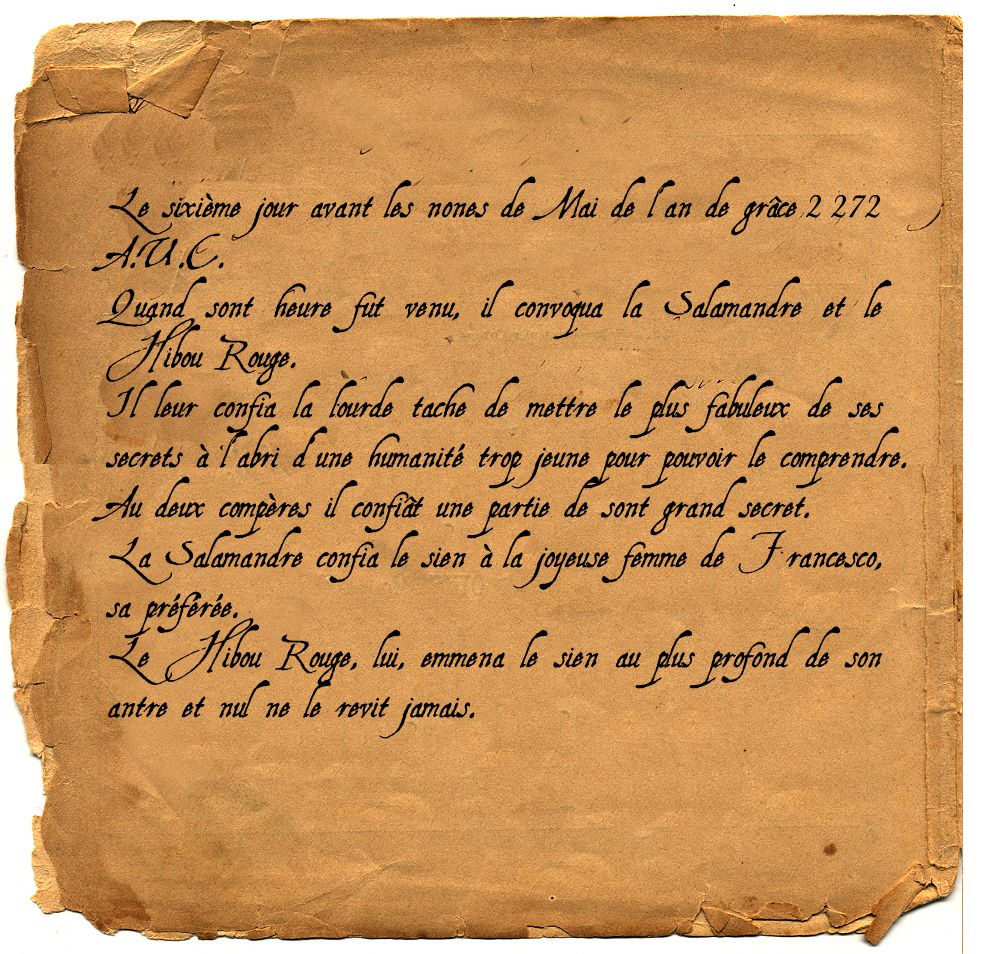 Le sixième jour avant les nones de Mai de l'an de grâce 2 272
A.U.C.
Quand sont heure fut venu, il convoqua la Salamandre et le
Hibou Rouge.
Il leur confia la lourde tache de mettre le plus fabuleux de ses
secrets à l'abri d'une humanité trop jeune pour pouvoir le comprendre.
Au deux compères il confiât une partie de sont grand secret.
La Salamandre confia le sien à la joyeuse femme de Francesco,
sa préférée.
Le Hibou Rouge, lui, emmena le sien au plus profond de son
antre et nul ne le revit jamais.